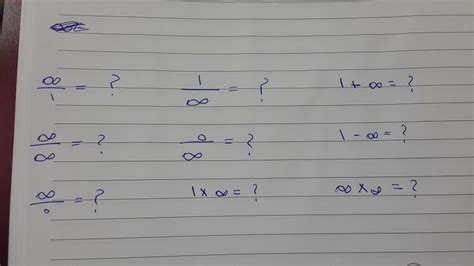 ∞/1 = ? 1/∞ = ? 1 + ∞ = ?
∞/∞ = ? 0/∞ = ? 1 - ∞ = ?
∞/0 = ? 1 × ∞ = ? ∞ × ∞ = ?